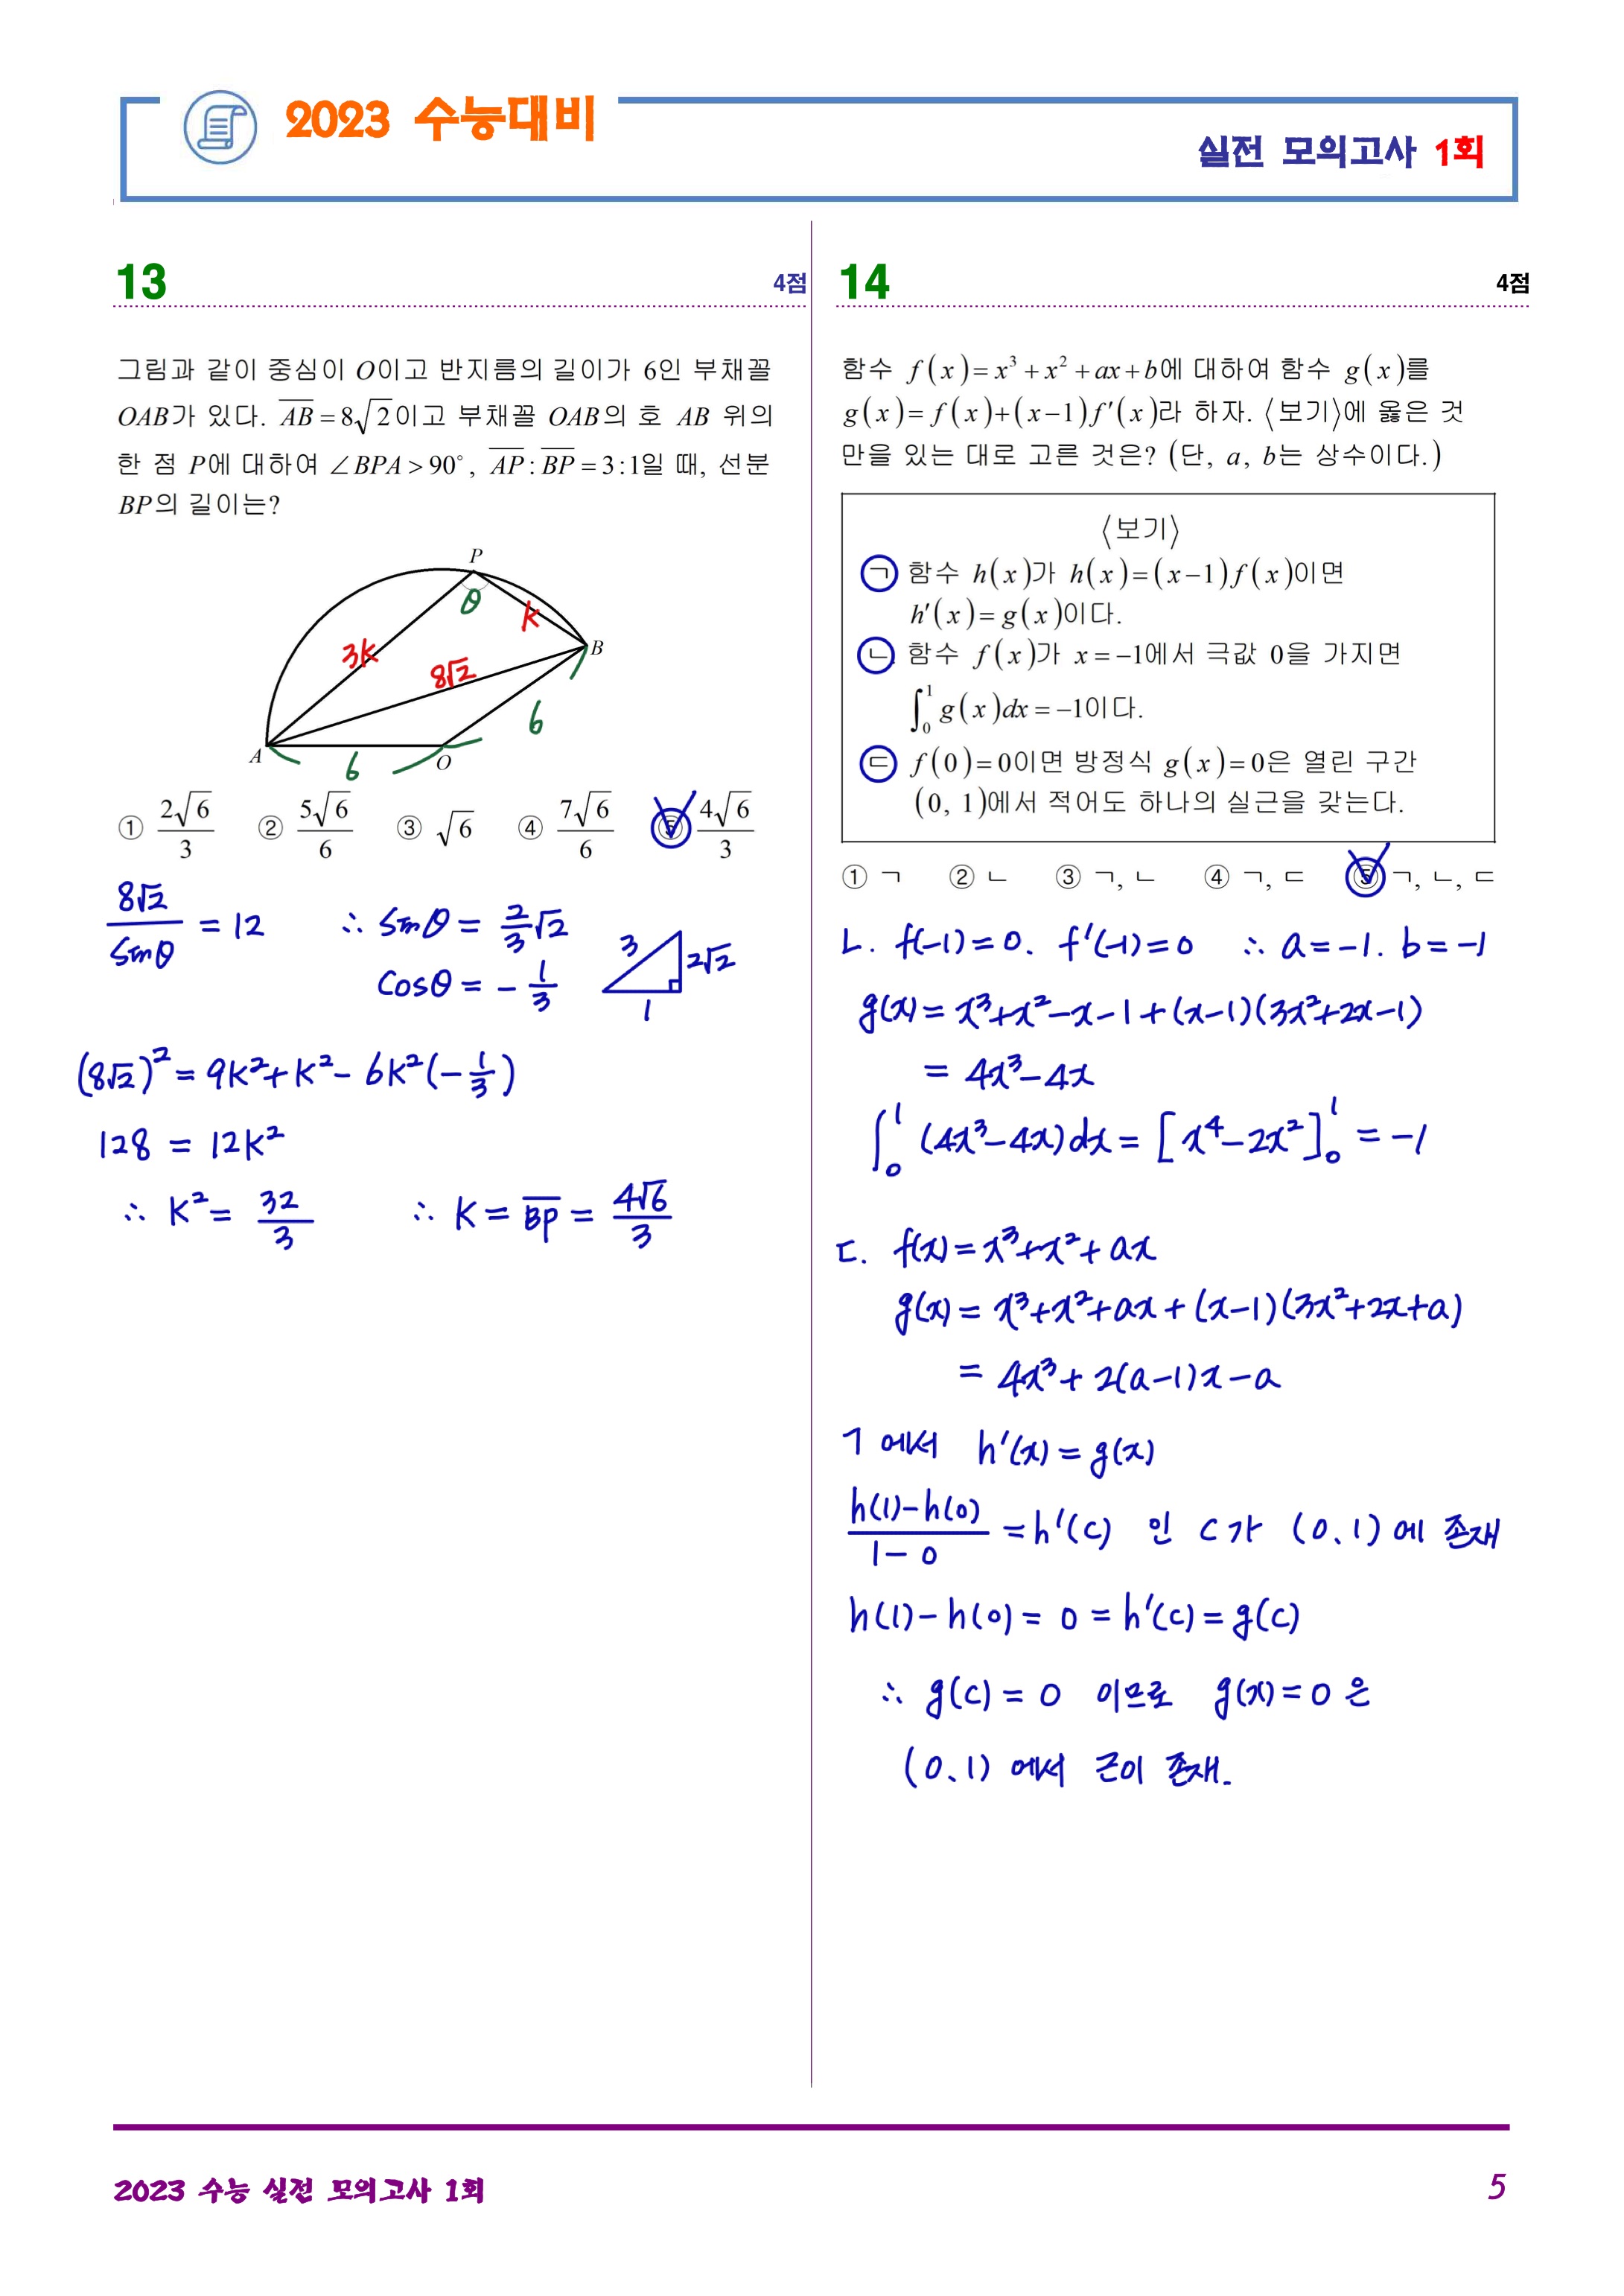 2023 수능대비
실전 모의고사 1회
13
4점
그림과 같이 중심이 O이고 반지름의 길이가 6인 부채꼴
OAB가 있다. \overline{AB}=8√2이고 부채꼴 OAB의 호 AB 위의
한 점 P에 대하여 ∠BPA>90°, \overline{AP}:\overline{BP}=3:1일 때, 선분
BP의 길이는?
P
θ
k
3k
8√2
B
6
A
6
O
① 2√6/3 ② 5√6/6 ③ √6 ④ 7√6/6 ⑤ 4√6/3
8√2/sinθ = 12 ∴ sinθ = 2/3√2
cosθ = -1/3
3
2√2
1
(8√2)² = 9k²+k²-6k²(-1/3)
128 = 12k²
∴ k² = 32/3 ∴ k = \overline{BP} = 4√6/3
14
4점
함수 f(x)=x³+x²+ax+b에 대하여 함수 g(x)를
g(x)=f(x)+(x-1)f′(x)라 하자. 〈보기〉에 옳은 것
만을 있는 대로 고른 것은? (단, a, b는 상수이다.)
〈보기〉
ㄱ 함수 h(x)가 h(x)=(x-1)f(x)이면
h′(x)=g(x)이다.
ㄴ 함수 f(x)가 x=-1에서 극값 0을 가지면
∫₀¹ g(x)dx=-1이다.
ㄷ f(0)=0이면 방정식 g(x)=0은 열린 구간
(0, 1)에서 적어도 하나의 실근을 갖는다.
① ㄱ ② ㄴ ③ ㄱ, ㄴ ④ ㄱ, ㄷ ⑤ ㄱ, ㄴ, ㄷ
ㄴ. f(-1)=0. f′(-1)=0 ∴ a=-1. b=-1
g(x)= x³+x²-x-1+(x-1)(3x²+2x-1)
= 4x³-4x
∫₀¹ (4x³-4x)dx = [x⁴-2x²]₀¹ = -1
ㄷ. f(x)=x³+x²+ax
g(x)= x³+x²+ax+(x-1)(3x²+2x+a)
= 4x³+2(a-1)x-a
ㄱ에서 h′(x)=g(x)
h(1)-h(0)/1-0 = h′(c) 인 c가 (0, 1)에 존재
h(1)-h(0)= 0 = h′(c)= g(c)
∴ g(c)=0 이므로 g(x)=0은
(0, 1)에서 근이 존재.
2023 수능 실전 모의고사 1회
5